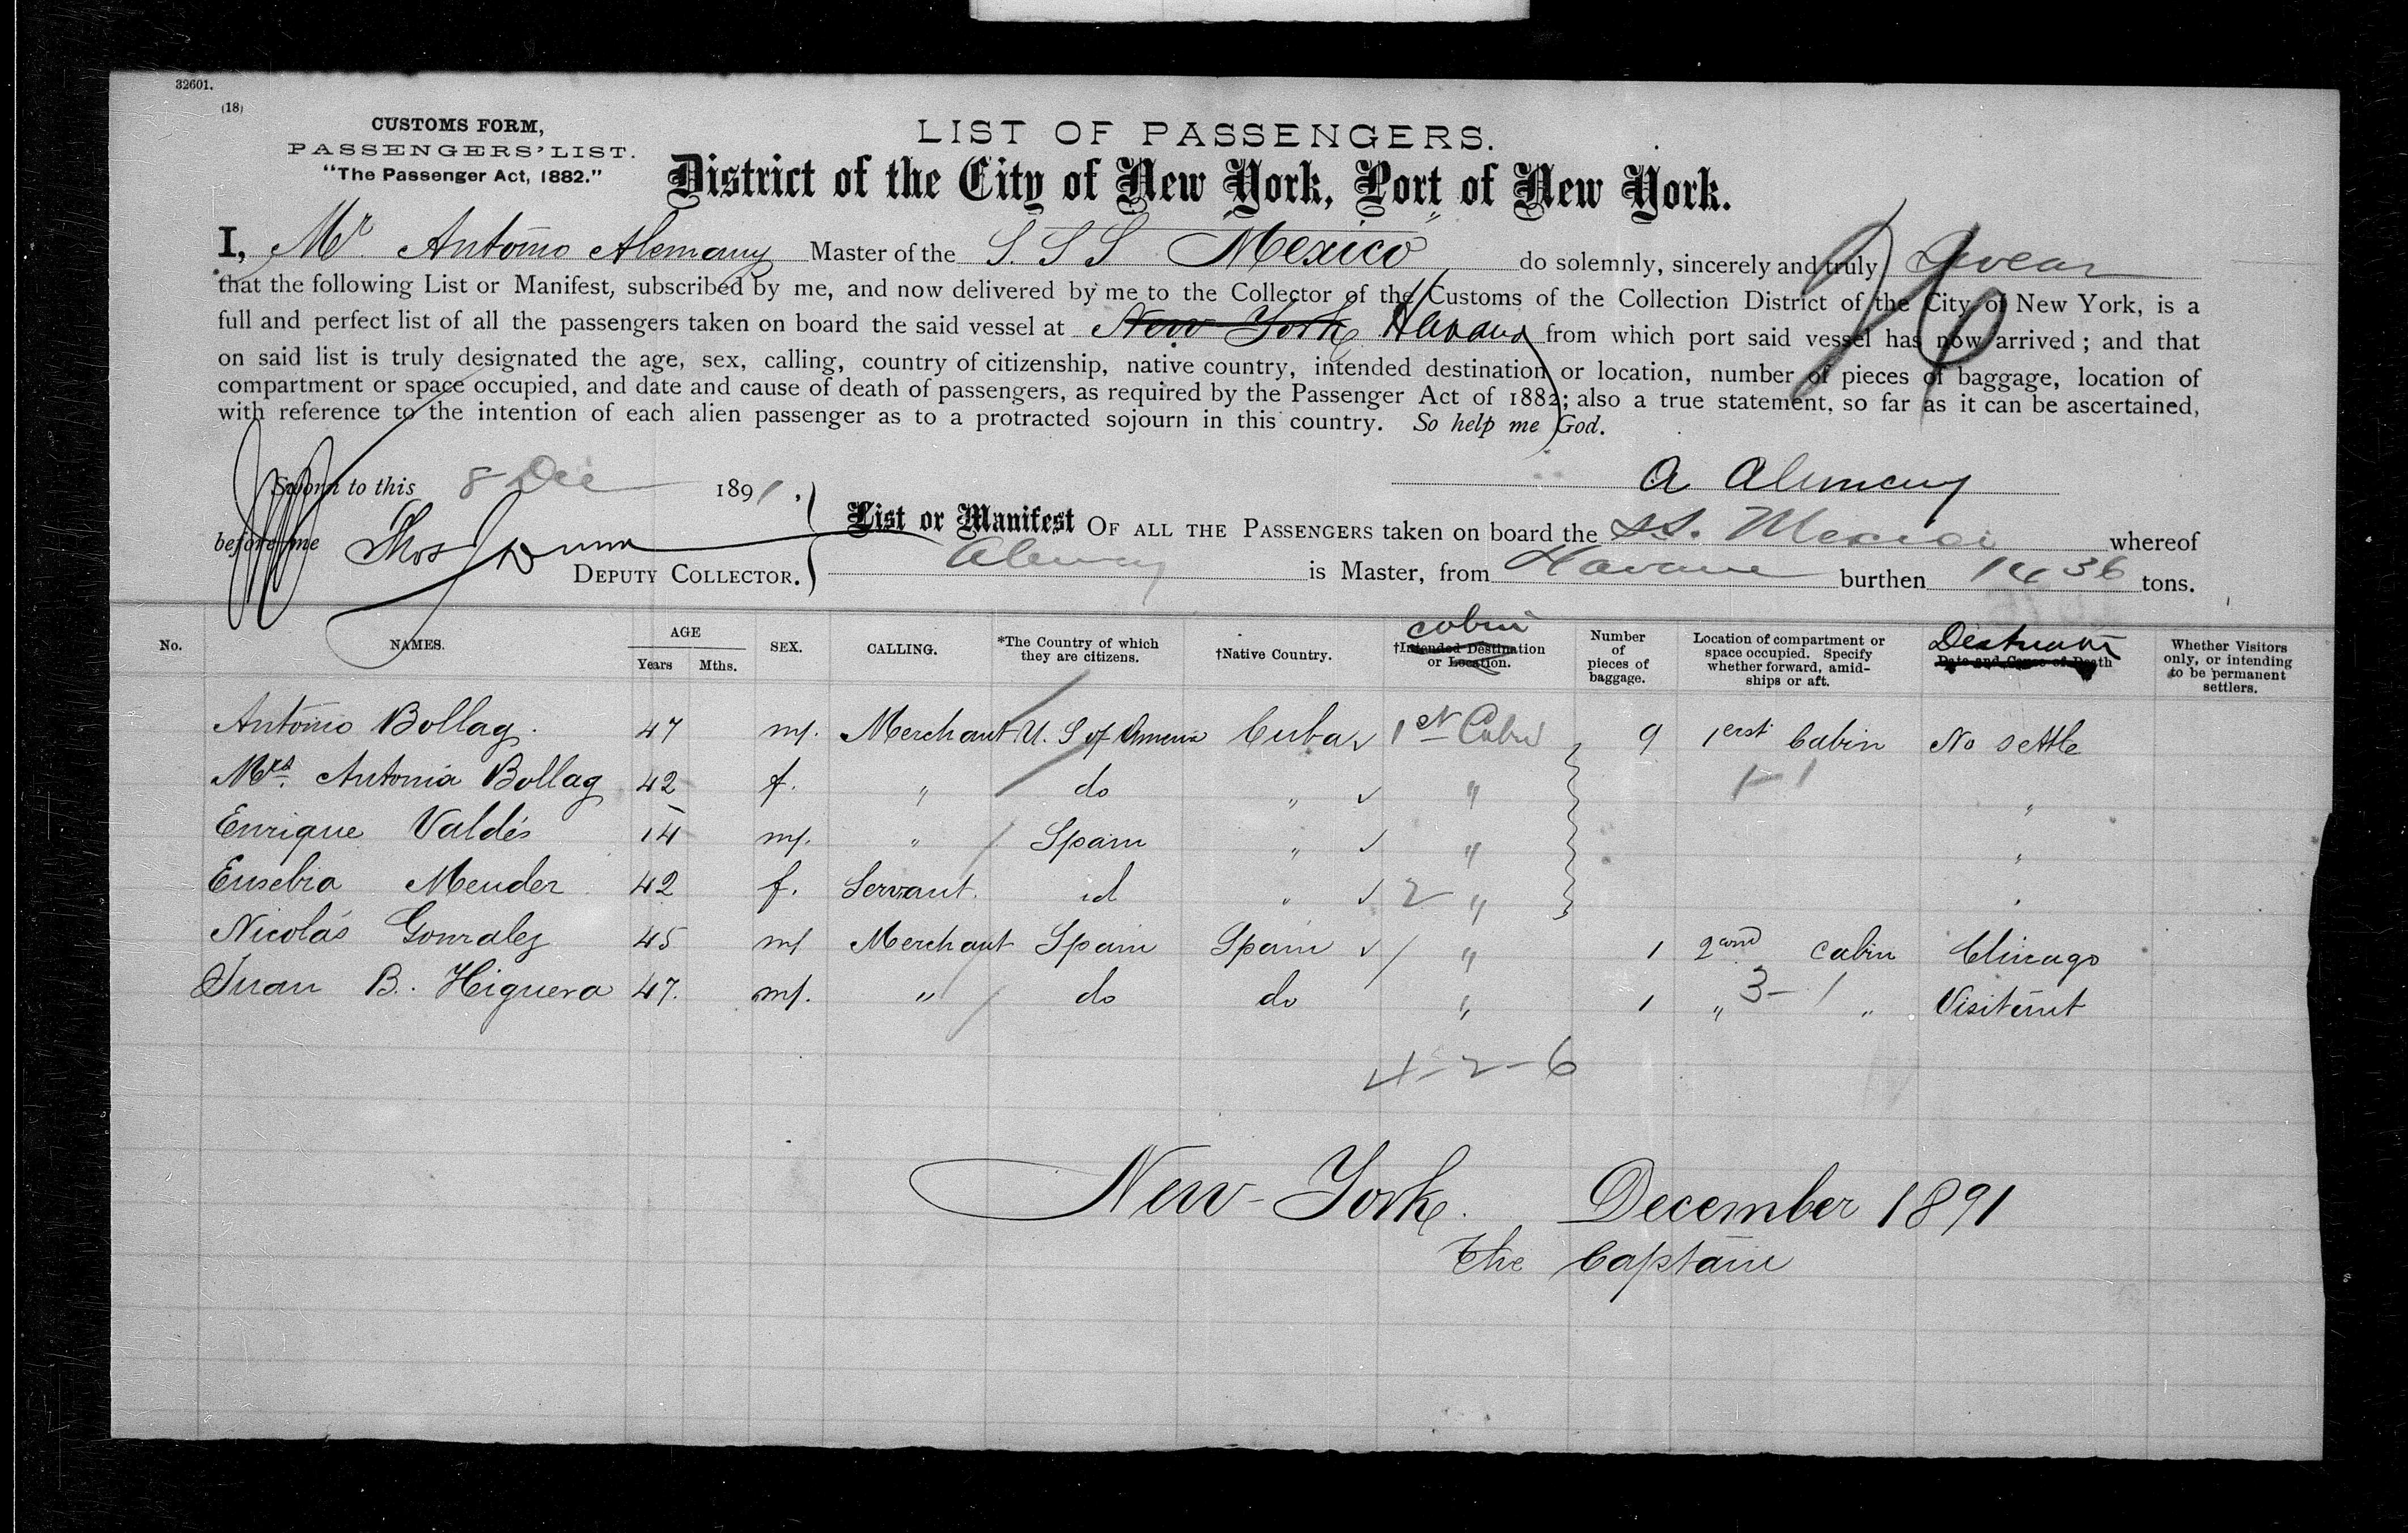 32601.
(18)
CUSTOMS FORM,
PASSENGERS' LIST.
"The Passenger Act, 1882."
LIST OF PASSENGERS.
District of the City of New York, Port of New York.
I, Mr. Antonio Alemany Master of the S. S S "Mexico" do solemnly, sincerely and truly Swear
that the following List or Manifest, subscribed by me, and now delivered by me to the Collector of the Customs of the Collection District of the City of New York, is a
full and perfect list of all the passengers taken on board the said vessel at New York Havana from which port said vessel has now arrived; and that
on said list is truly designated the age, sex, calling, country of citizenship, native country, intended destination or location, number of pieces of baggage, location of
compartment or space occupied, and date and cause of death of passengers, as required by the Passenger Act of 1882; also a true statement, so far as it can be ascertained,
with reference to the intention of each alien passenger as to a protracted sojourn in this country. So help me God.
Sworn to this 8 Dec 1891,
A Alemany
before me Thos Dunn
DEPUTY COLLECTOR.
List or Manifest OF ALL THE PASSENGERS taken on board the SS. Mexico whereof
Alemany is Master, from Havana burthen 1436 tons.
No. NAMES. AGE Years Mths. SEX. CALLING. *The Country of which they are citizens. †Native Country. cabin †Intended Destination or Location. Number of pieces of baggage. Location of compartment or space occupied. Specify whether forward, amidships or aft. Destination Date and Cause of Death Whether Visitors only, or intending to be permanent settlers.
Antonio Bollag. 47 m. Merchant U. S of America Cuba 1st Cabin 9 1erst Cabin No settle
Mrs. Antonia Bollag 42 f. " do " " 1-1 "
Enrique Valdés 14 m. " Spain " " "
Eusebia Mender 42 f. Servant. id " 2 " "
Nicolás Gonzalez 45 m Merchant Spain Spain " 1 2and cabin Chicago
Juan B. Higuera 47. m. " do do " 1 " 3-1 "
4-2-6
New-York. December 1891
The Captain